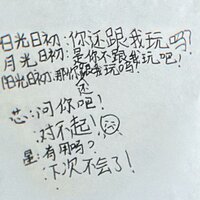 日光日初:你还跟我玩吗?
月光日初:是你不跟我玩吧!
阳光日初:那你还跟我玩吗?
芯:问你吧!
对不起!
星:有用吗?
下次不会了!